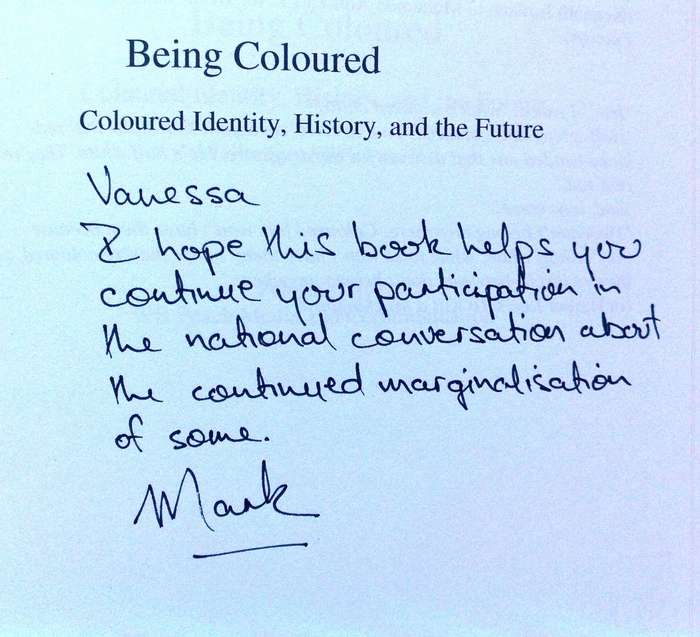 Being Coloured
Coloured Identity, History, and the Future
Vanessa
I hope this book helps you
continue your participation in
the national conversation about
the continued marginalisation
of some.
Mark